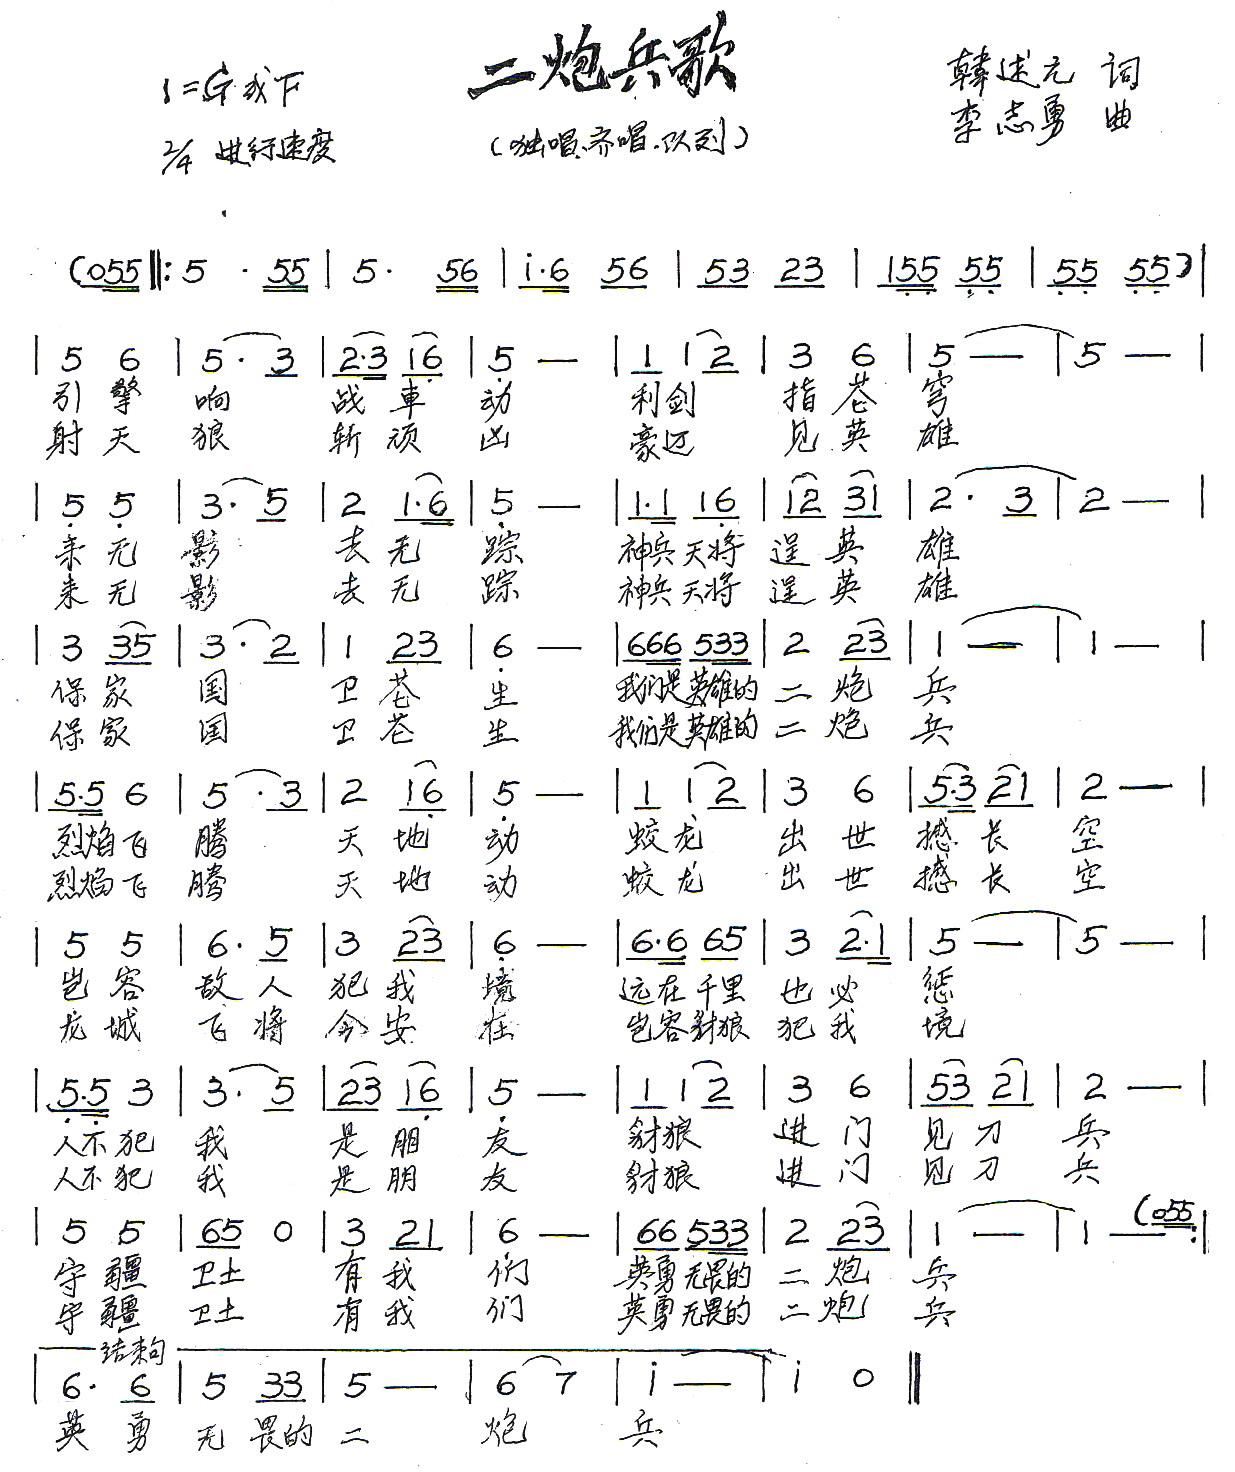 二炮兵歌
1=G或F
韩述元 词
2/4 进行速度
(独唱、齐唱、队列)
李志勇 曲
(055‖: 5 · 55 | 5· 56 | i·6 56 | 53 23 | 155 55 | 55 55) |
| 5 6 | 5· 3 | 2·3 16 | 5 — | 1 1 2 | 3 6 | 5 — | 5 — |
引擎 响 战車 动 利剑 指苍 穹
射天 狼 斩顽 凶 豪迈 见英 雄
| 5 5 | 3· 5 | 2 1·6 | 5 — | 1·1 16 | 12 31 | 2· 3 | 2 — |
来无 影 去无 踪 神兵天将 逞英 雄
来无 影 去无 踪 神兵天将 逞英 雄
| 3 35 | 3· 2 | 1 23 | 6 — | 666 533 | 2 23 | 1 — | 1 — |
保家 国 卫苍 生 我们是英雄的 二炮 兵
保家 国 卫苍 生 我们是英雄的 二炮 兵
| 5·5 6 | 5 ·3 | 2 16 | 5 — | 1 1 2 | 3 6 | 5·3 21 | 2 — |
烈焰飞 腾 天地 动 蛟龙 出世 撼长 空
烈焰飞 腾 天地 动 蛟龙 出世 撼长 空
| 5 5 | 6· 5 | 3 23 | 6 — | 6·6 65 | 3 2·1 | 5 — | 5 — |
岂容 敌人 犯我 境 远在千里 也必 惩
龙城 飞将 今安 在 岂容豺狼 犯我 境
| 5·5 3 | 3· 5 | 23 16 | 5 — | 1 1 2 | 3 6 | 53 21 | 2 — |
人不犯 我 是朋 友 豺狼 进门 见刀 兵
人不犯 我 是朋 友 豺狼 进门 见刀 兵
| 5 5 | 65 0 | 3 21 | 6 — | 66 533 | 2 23 | 1 — | 1 — (055 :|
守疆 卫土 有我 们 英勇无畏的 二炮 兵
守疆 卫土 有我 们 英勇无畏的 二炮 兵
结束句
| 6· 6 | 5 33 | 5 — | 6 7 | i — | i 0 ‖
英勇 无畏的 二 炮 兵